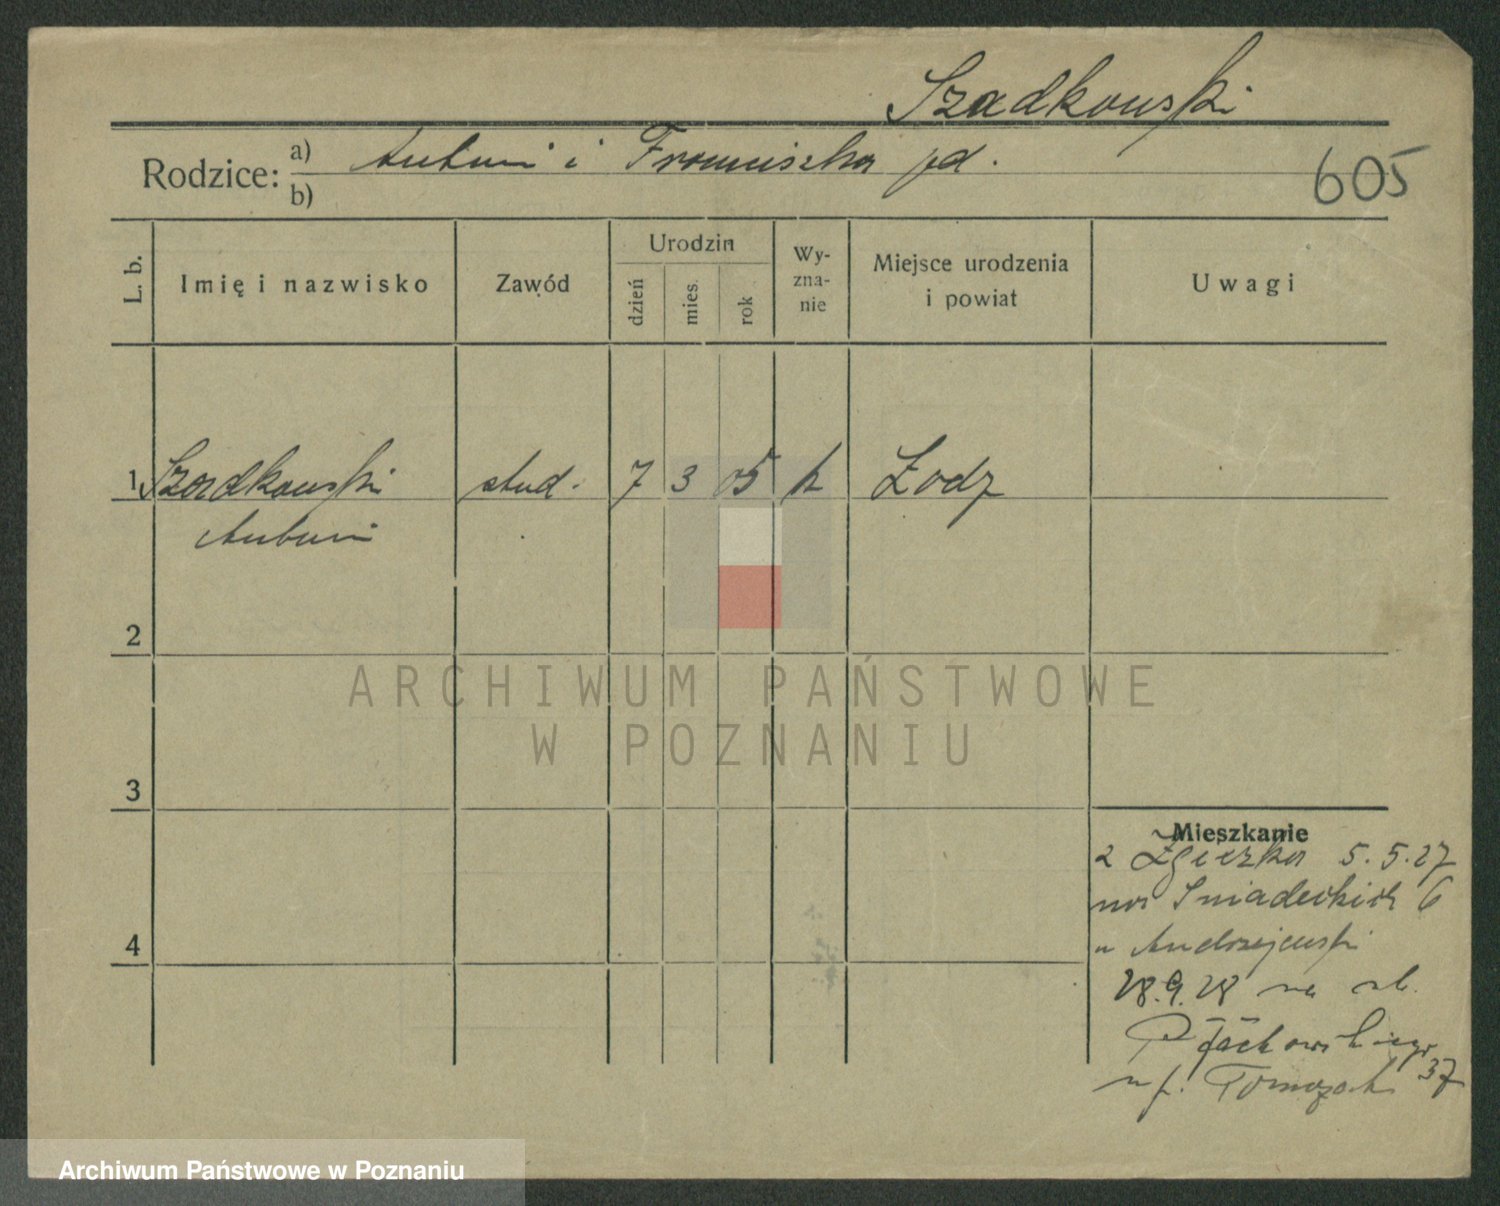 Szadkowski
Rodzice: a) Antoni i Franciszka pd.
b)
605
L. b.
Imię i nazwisko
Zawód
Urodzin
dzień
mies.
rok
Wy-
zna-
nie
Miejsce urodzenia
i powiat
Uwagi
1 Szadkowski stud. 7 3 05 k Łodz
Antoni
2
3
4
ARCHIWUM PAŃSTWOWE
W POZNANIU
Mieszkanie
z Zgierza 5.5.27
na Śniadeckich 6
u Andrzejewski
28.9.28 na ul.
37
u p.
Archiwum Państwowe w Poznaniu